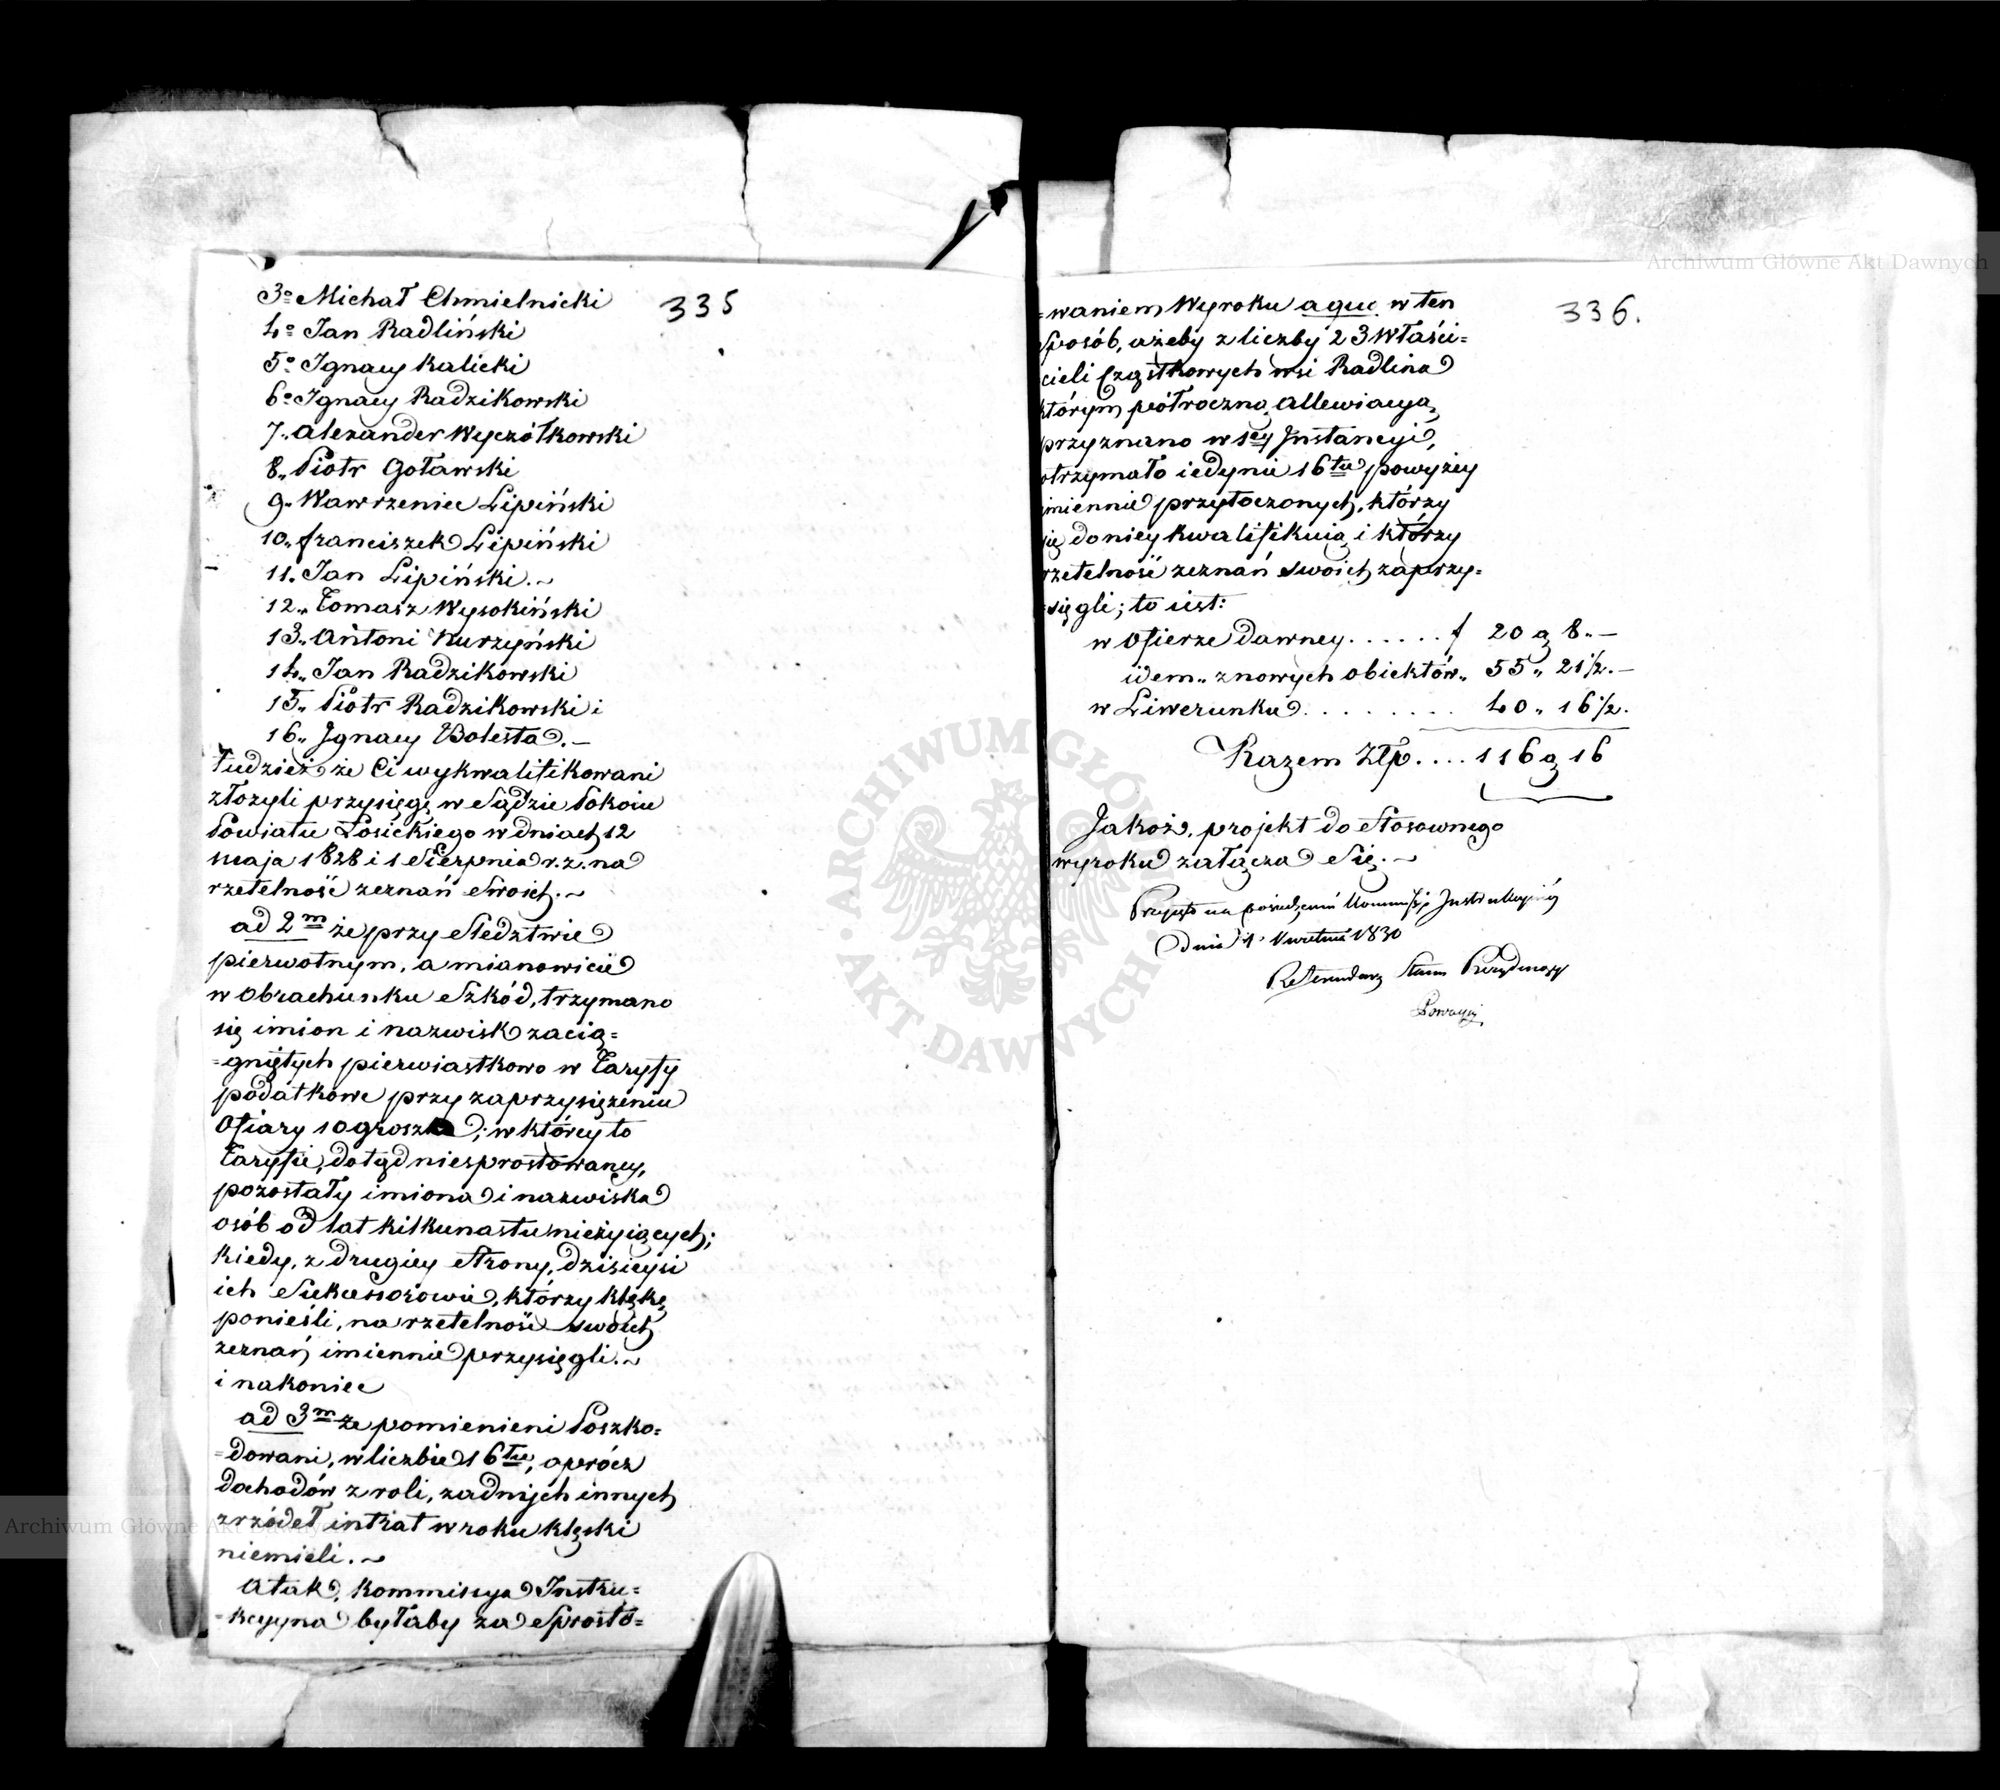 335
3º Michał Chmielnicki
4º Jan Radliński
5º Ignacy Kalicki
6º Ignacy Radzikowski
7. Alexander Wyczółkowski
8„ Piotr Goławski
9„ Wawrzeniec Lipiński
10„ franciszek Lipiński
11. Jan Lipiński.~
12„ Tomasz Wysokiński
13„ Antoni Kurzyński
14„ Jan Radzikowski
15„ Piotr Radzikowski i
16„ Jgnacy Bolesta.—
Tudzież że Ci wykwalifikowani
złożyli przysięgę w Sądzie Pokoiu
Powiatu Łosickiego w dniach 12
maja 1828 i 1 Sierpnia r.z. na
rzetelność zeznań Swoich.~
ad 2m że przy Śledztwie
pierwotnym, a mianowicie
w Obrachunku Szkód, trzymano
się imion i nazwisk zacią=
=gniętych pierwiastkowo w Taryfy
podatkowe przy zaprzysiężeniu
Ofiary 10 grosza; w którey to
Taryfie, dotąd niesprostowaney,
pozostały imiona i nazwiska
osób od lat kilkunastu nieżyiących;
kiedy, z drugiey Strony, dzisieysi
ich Sukcessorowie, którzy klęskę
ponieśli, na rzetelność swoich
zeznań imiennie przysięgli.~
i nakoniec
ad 3m że pomienieni Poszko=
=dowani, w liczbie 16tu, oprócz
dochodów z roli, żadnych innych
zrzódeł intrat w roku klęski
niemieli.~
A tak, Kommissya Instru=
=kcyyna byłaby za Sprosto=
336.
=waniem Wyroku a quo w ten
Sposób, ażeby z liczby 23 Właści=
cieli Cząstkowych wsi Radlina
którym półroczną Allewiacyą,
przyznano w 1ey Jnstancyi,
otrzymało iedynie 16tu powyżey
imiennie przytoczonych, którzy
się do niey kwalifikuią i którzy
rzetelność zeznań swoich zaprzy=
=sięgli; to iest:
w Ofierze dawney . . . . . . f 20 g 8„—
idem„ z nowych obiektów„ 55„ 21½.—
w Liwerunku . . . . . . . . 40„ 16½.
Razem Złp. . . . 116 g 16
Jakoż, projekt do Stosownego
wyroku załącza Się.~
Przyjęto na posiedzeniu Kommissyi Instrukcyinéy
dnia 1 Kwietnia 1830
Referendarz Stanu Prezyduiący
Archiwum Główne Akt Dawnych
Archiwum Główne Akt Dawnych
ARCHIWUM GŁÓWNE AKT DAWNYCH